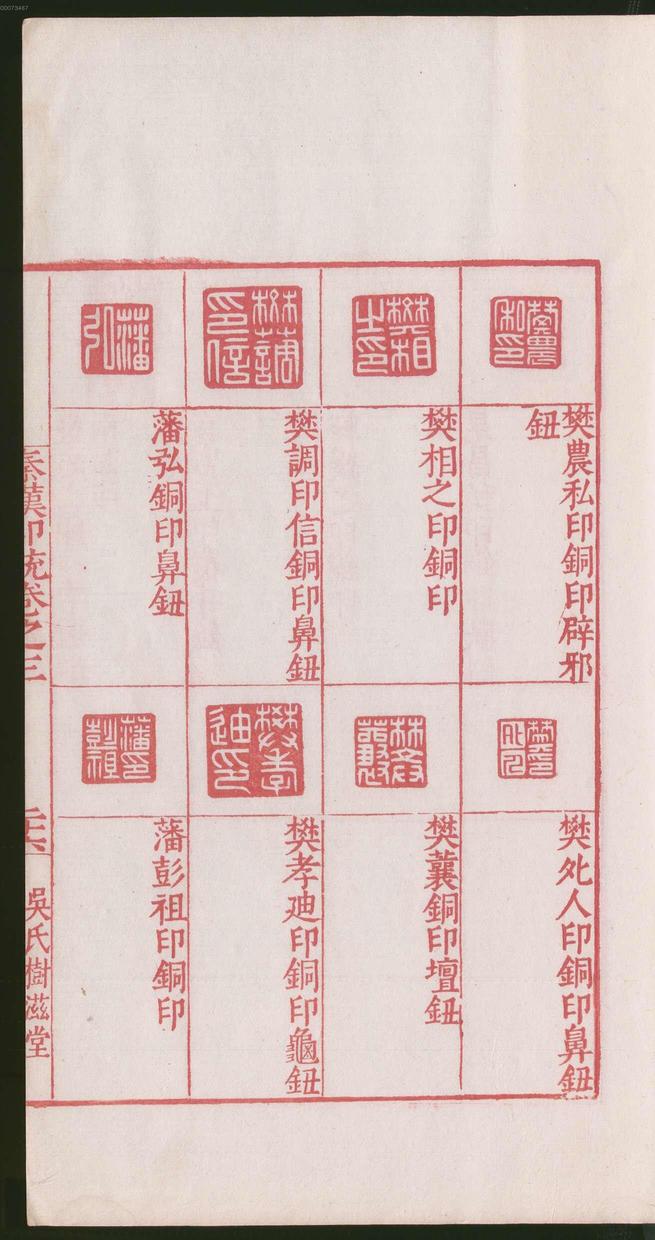 00073467
樊農私印銅印辟邪
鈕
樊相之印銅印
樊調印信銅印鼻鈕
藩弘銅印鼻鈕
樊処人印銅印鼻鈕
樊蘘銅印壇鈕
樊孝廸印銅印龜鈕
藩彭祖印銅印
秦漢印統卷之三
吳氏樹滋堂